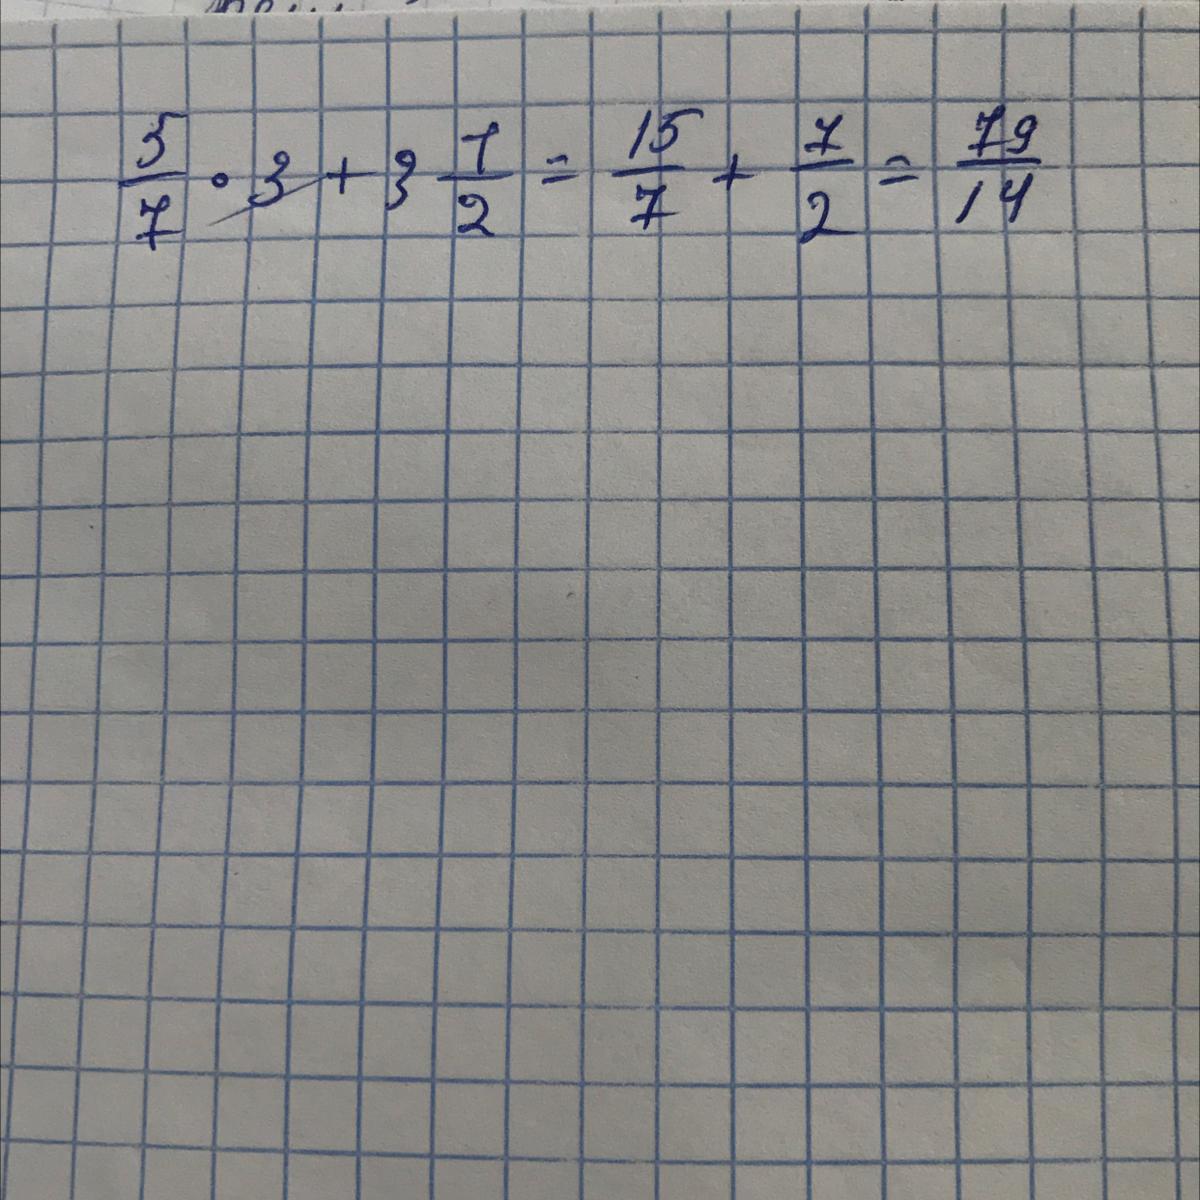 5/7 · 3 + 3 1/2 = 15/7 + 7/2 = 79/14